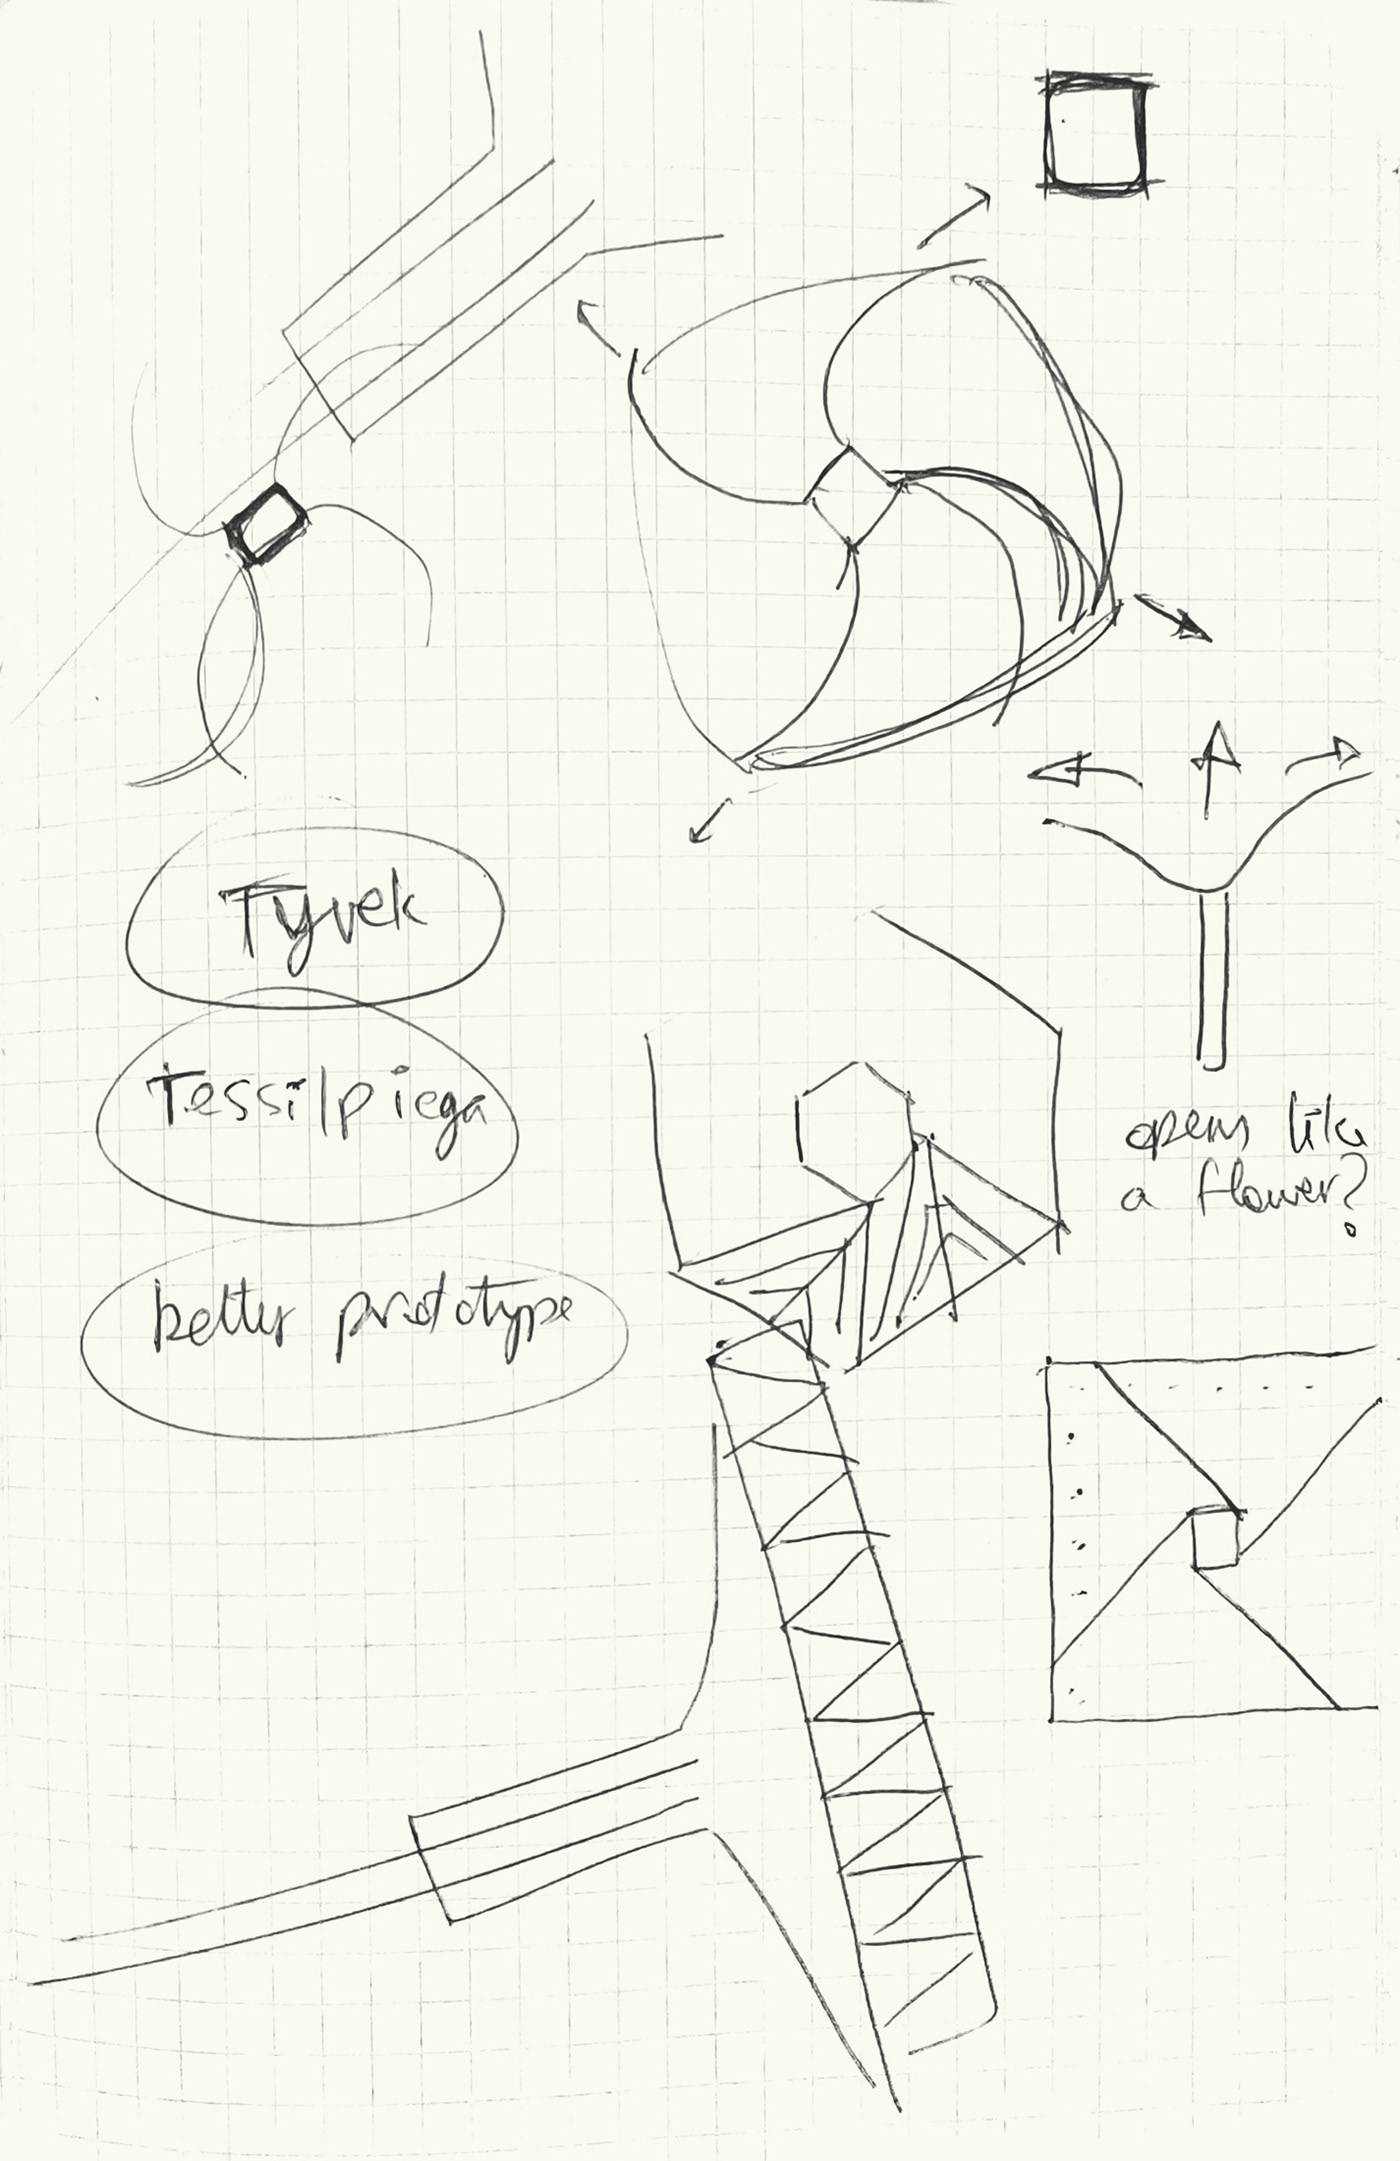 Tyvek
Tessil/piega
better prototype
opens like
a flower?